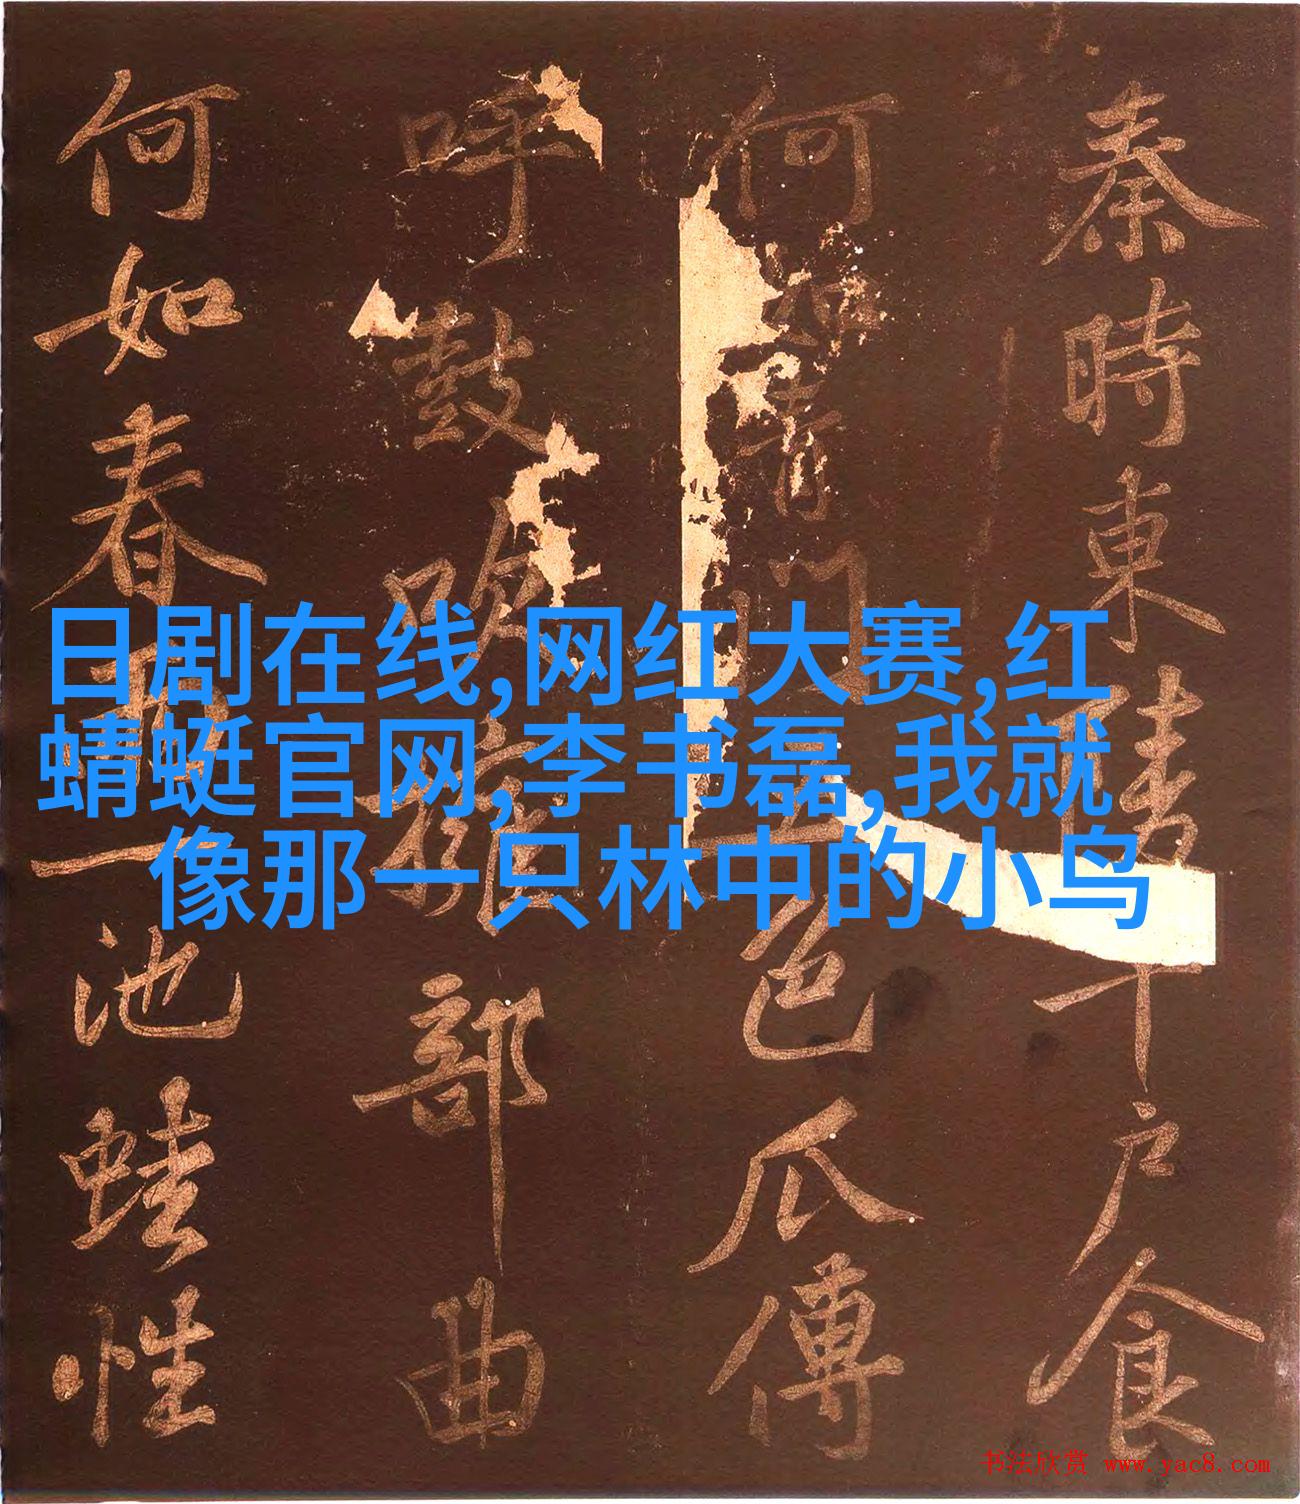 秦時東陵千戶食
何如青門五色瓜傳
呼鼓吹擁部曲
何如春雨一池蛙性
日剧在线,网红大赛,红
蜻蜓官网,李书磊,我就
像那一只林中的小鸟
书法欣赏 www.yac8.com